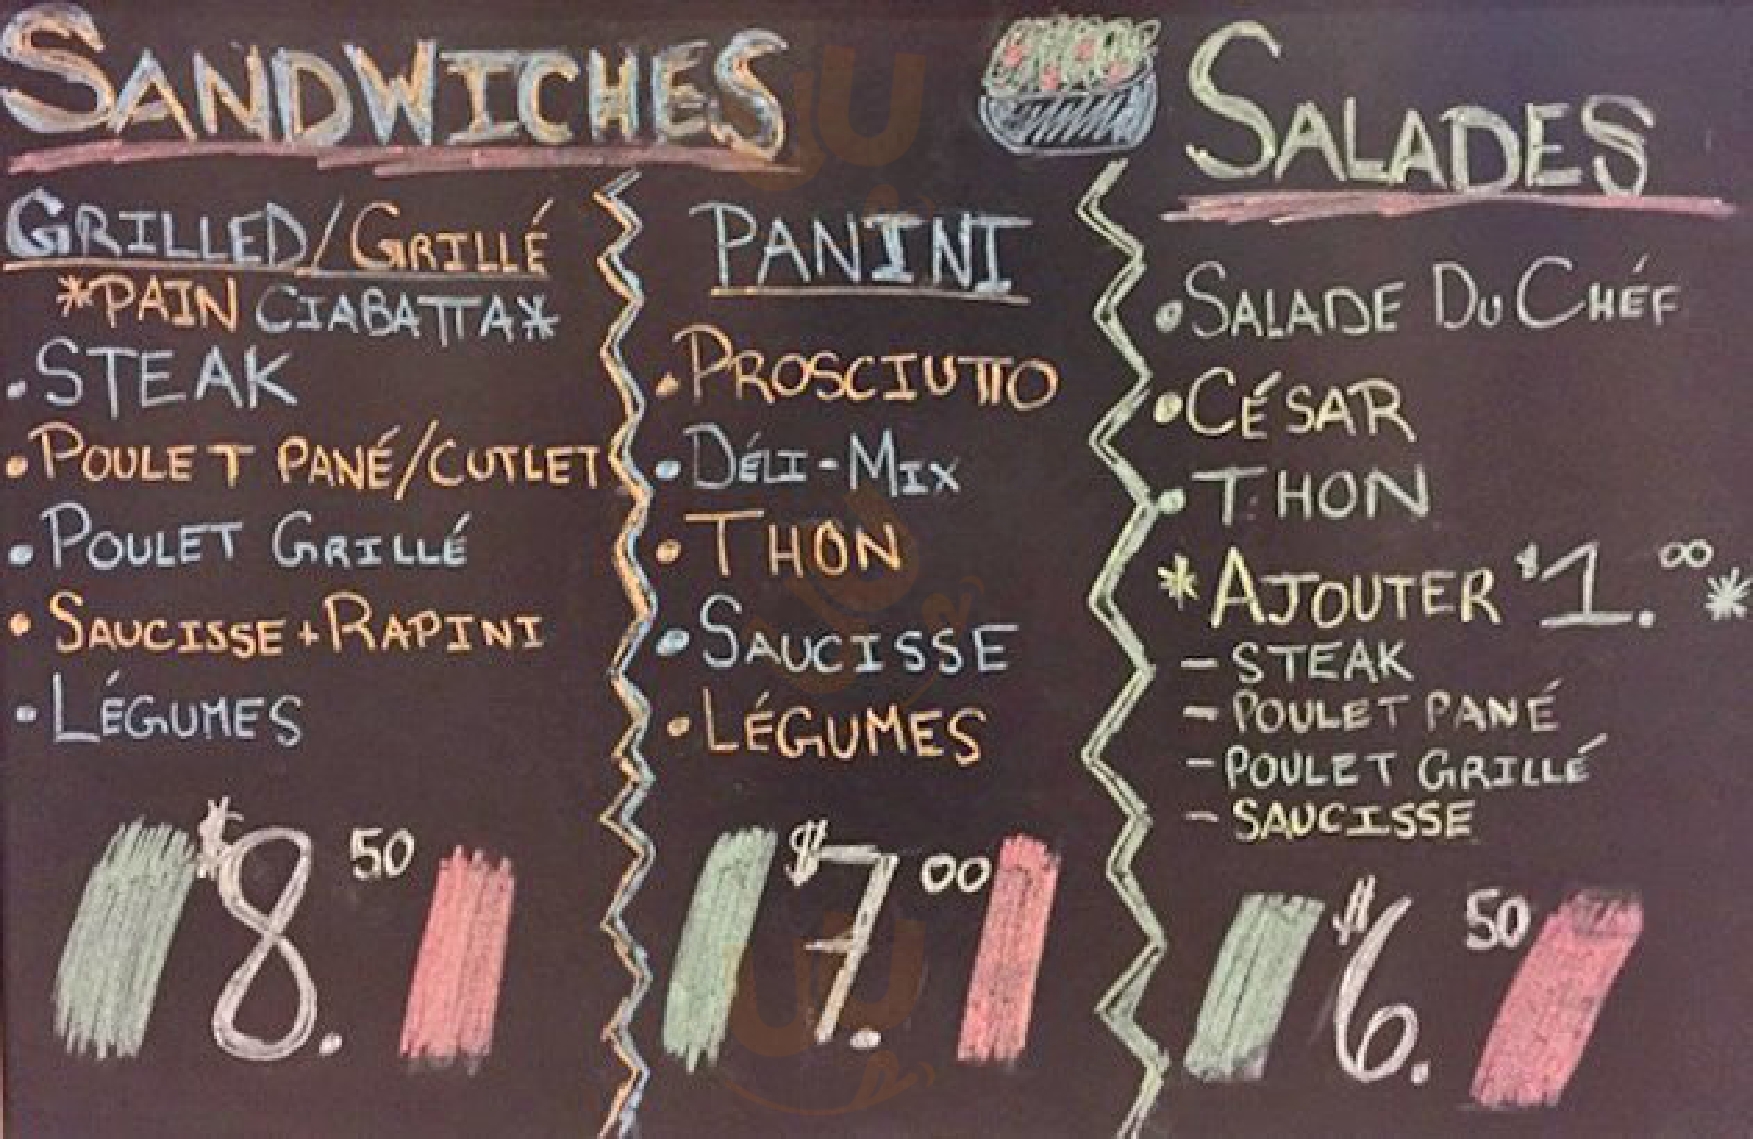 SANDWICHES
GRILLED/GRILLÉ
*PAIN CIABATTA*
•STEAK
•POULET PANÉ/CUTLET
•POULET GRILLÉ
•SAUCISSE+RAPINI
•LÉGUMES
$8.50
PANINI
•PROSCIUTTO
•DÉLI-MIX
•THON
•SAUCISSE
•LÉGUMES
$7.00
SALADES
•SALADE DU CHÉF
•CÉSAR
•THON
*AJOUTER $1.00*
-STEAK
-POULET PANÉ
-POULET GRILLÉ
-SAUCISSE
$6.50